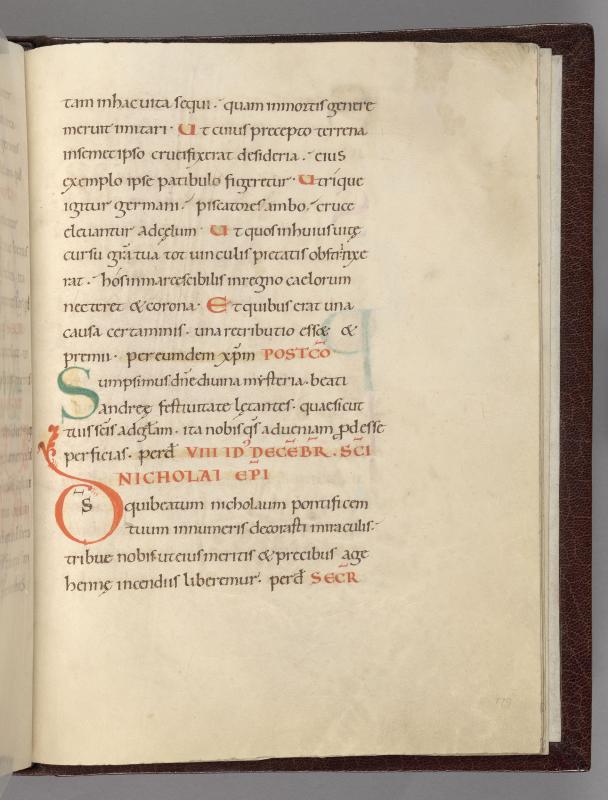 tam in hac uita sequi . quam in mortis genere
meruit imitari . Ut cuius precepto terrena
in semet ipso crucifixerat desideria . eius
exemplo ipse patibulo figeretur . Utrique
igitur germani . piscatores ambo . cruce
eleuantur ad cęlum . Ut quos in huius uitę
cursu gr̄a tua tot uinculis pietatis obstrinxe
rat . hos inmarcescibilis in regno caelorum
necteret & corona . Et quibus erat una
causa certaminis . una retributio ess& &
premii . per eundem xp̄m POST CO̅
Sumpsimus dn̄e diuina mysteria . beati
andreę festiuitate lętantes . quaesicut
tuis sc̄is ad gl̄am . ita nobis qs̄ aduęniam ꝓdesse
perficias . perd̄ VIII ID' DECE̅BR . SC̅I
NICHOLAI EP̅I
Ds qui beatum nicholaum pontificem
tuum innumeris decorasti miraculis .
tribue nobis ut eius meritis & precibus age
hennę incendiis liberemur . perd̄ SEC̅R
179